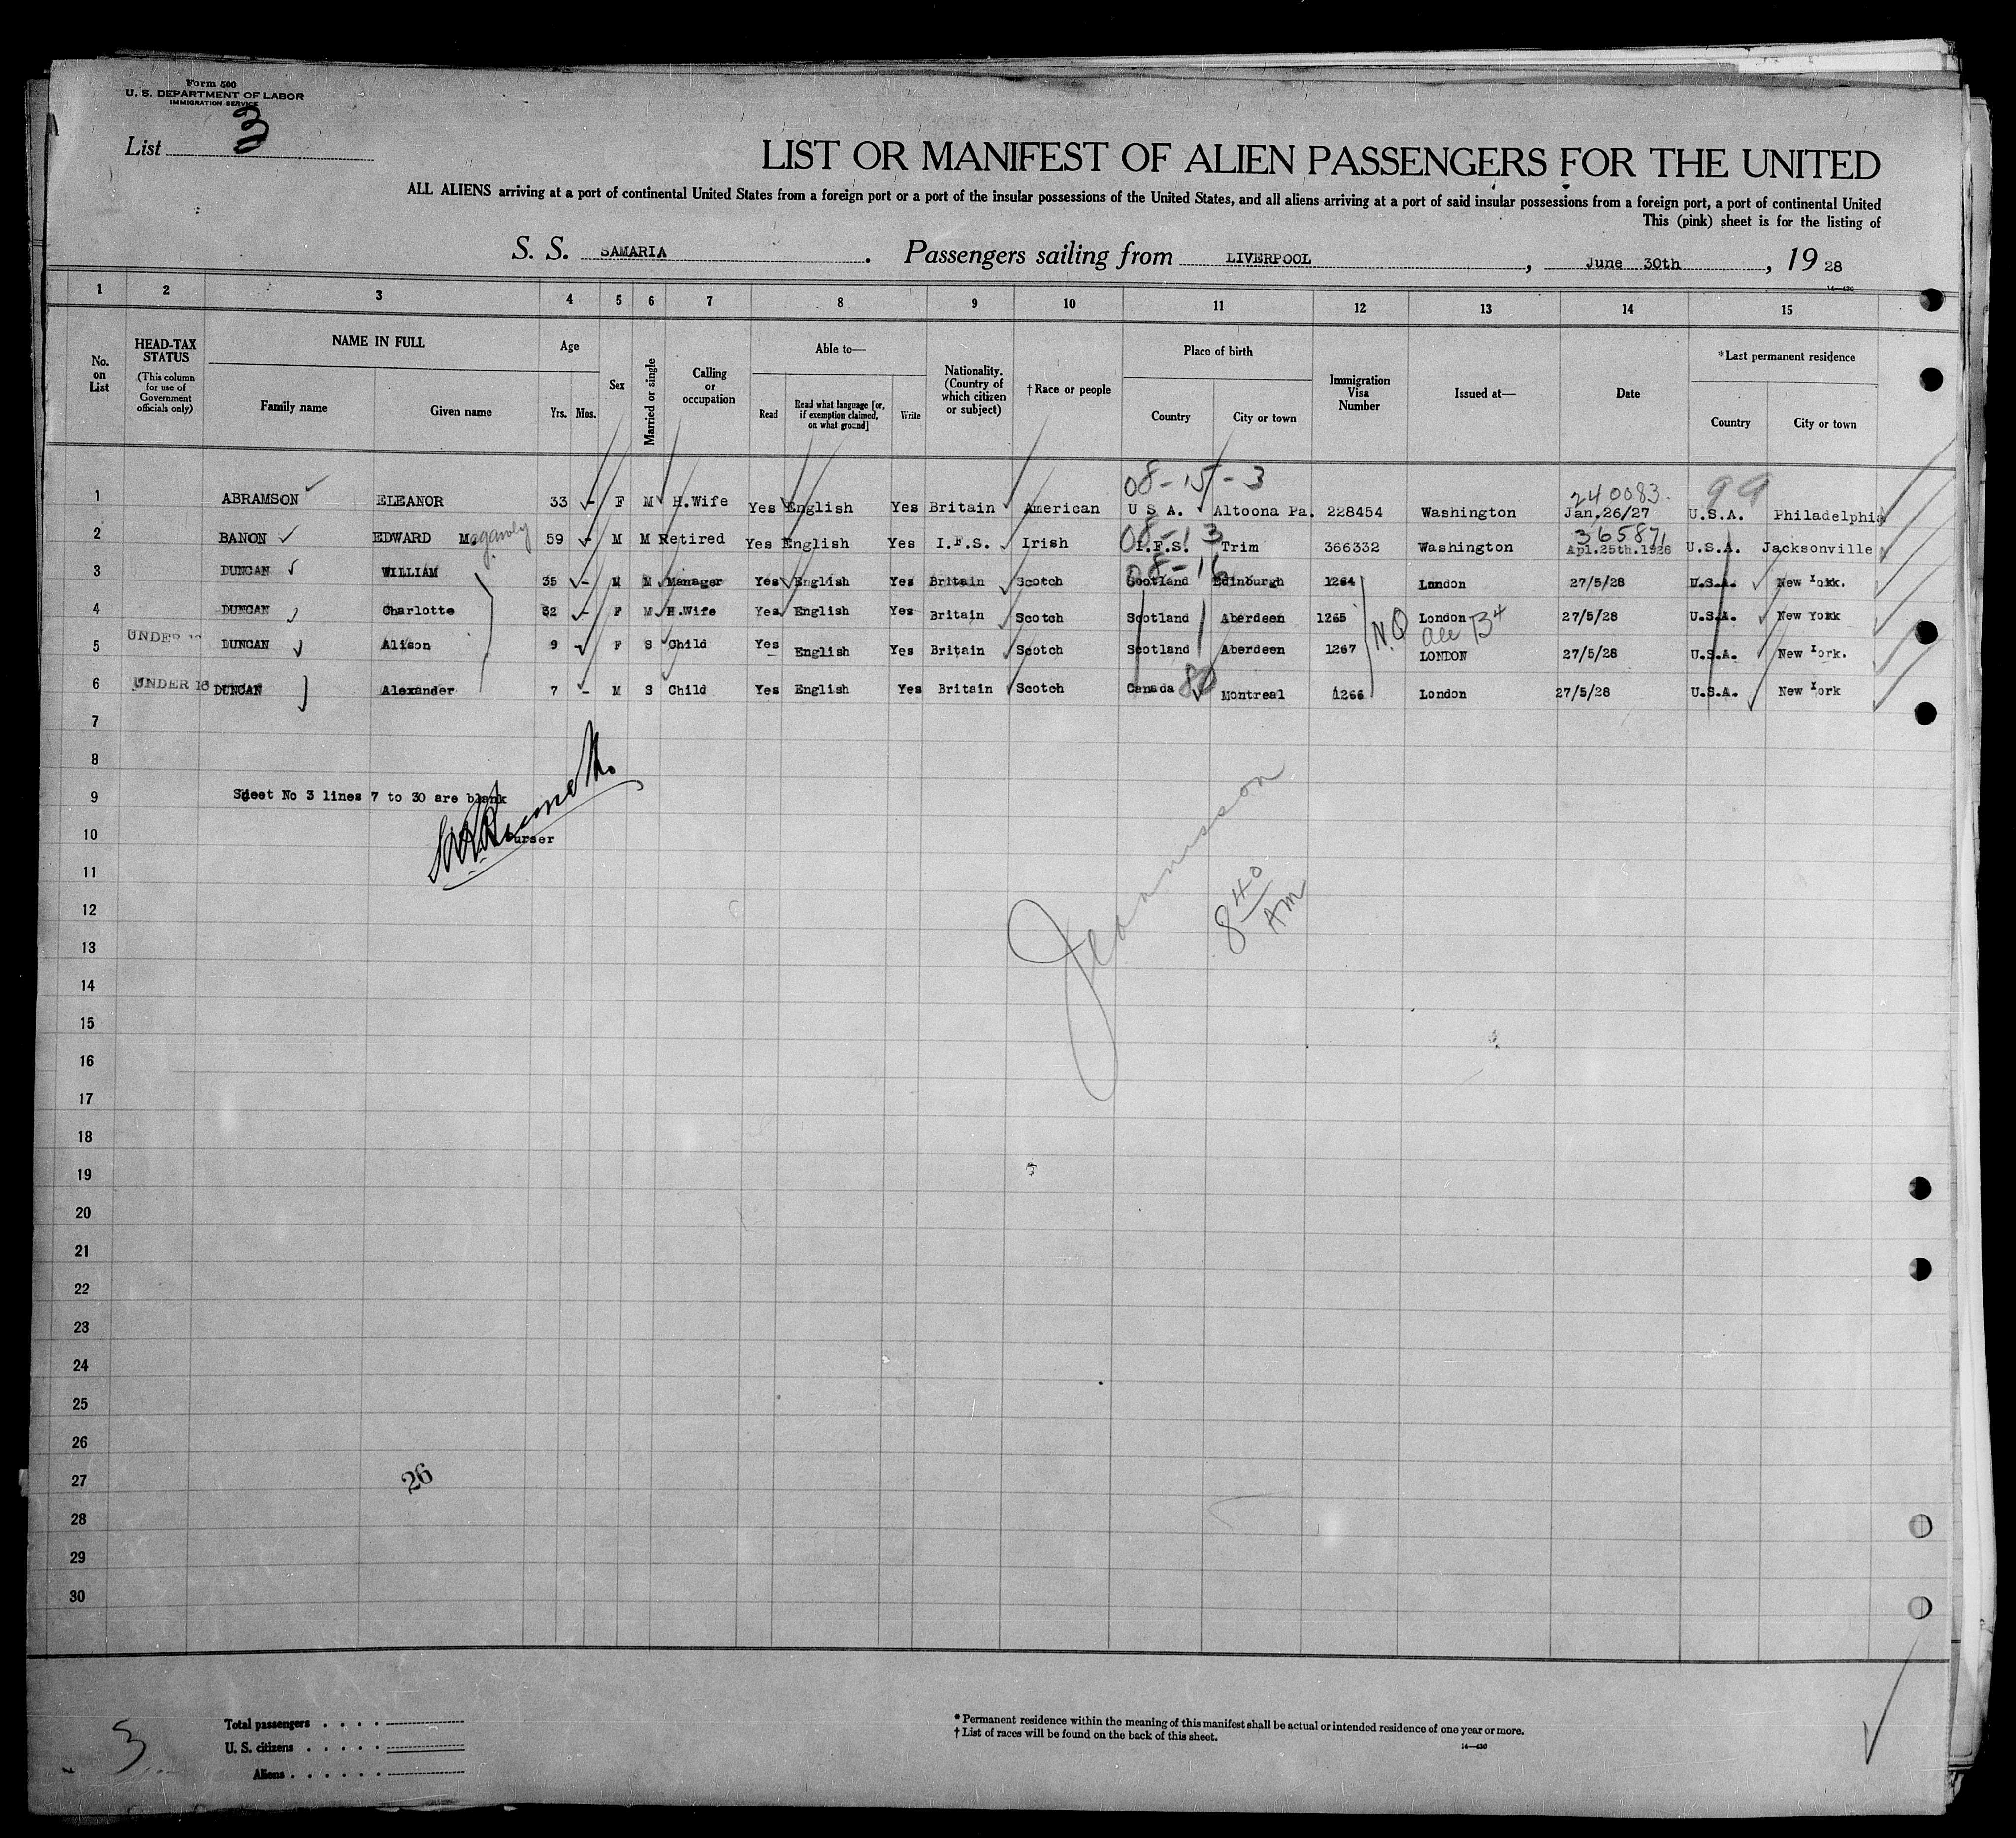 Form 500
U. S. DEPARTMENT OF LABOR
IMMIGRATION SERVICE
List 3
LIST OR MANIFEST OF ALIEN PASSENGERS FOR THE UNITED
ALL ALIENS arriving at a port of continental United States from a foreign port or a port of the insular possessions of the United States, and all aliens arriving at a port of said insular possessions from a foreign port, a port of continental United
This (pink) sheet is for the listing of
S. S. SAMARIA . Passengers sailing from LIVERPOOL , June 30th , 19 28
14—430
1 2 3 4 5 6 7 8 9 10 11 12 13 14 15
No. on List
HEAD-TAX STATUS
(This column for use of Government officials only)
NAME IN FULL
Family name Given name
Age
Yrs. Mos.
Sex
Married or single
Calling or occupation
Able to—
Read
Read what language [or, if exemption claimed, on what ground]
Write
Nationality. (Country of which citizen or subject)
†Race or people
Place of birth
Country City or town
Immigration Visa Number
Issued at—
Date
*Last permanent residence
Country City or town
08-15-3 240083. 99
1 ABRAMSON ELEANOR 33 - F M H.Wife Yes English Yes Britain American U S A. Altoona Pa. 228454 Washington Jan.26/27 U.S.A. Philadelphia
08-13 365871
2 BANON EDWARD 59 - M M Retired Yes English Yes I.F.S. Irish I.F.S. Trim 366332 Washington Apl.25th.1928 U.S.A. Jacksonville
08-16
3 DUNCAN WILLIAM 35 - M M Manager Yes English Yes Britain Scotch Scotland Edinburgh 1264 London 27/5/28 U.S.A. New York.
4 DUNCAN Charlotte 32 - F M H.Wife Yes English Yes Britain Scotch Scotland Aberdeen 1265 London 27/5/28 U.S.A. New York
N.Q
5 UNDER 16 DUNCAN Alison 9 - F S Child Yes English Yes Britain Scotch Scotland Aberdeen 1267 LONDON 27/5/28 U.S.A. New York.
80
6 UNDER 16 DUNCAN Alexander 7 - M S Child Yes English Yes Britain Scotch Canada Montreal 1266 London 27/5/28 U.S.A. New York
7
8
9 Sheet No 3 lines 7 to 30 are blank
10 Purser
11
8 40 AM
12
13
14
15
16
17
18
19
20
21
22
23
24
25
26
27
26
28
29
30
Total passengers . . . .
U. S. citizens . . . . .
Aliens . . . . . .
* Permanent residence within the meaning of this manifest shall be actual or intended residence of one year or more.
† List of races will be found on the back of this sheet.
14—430